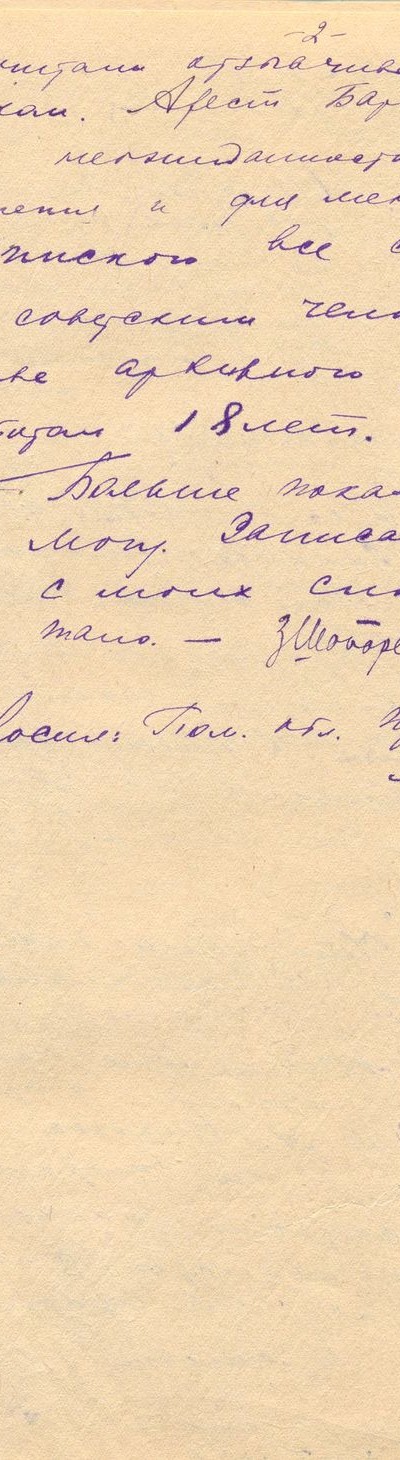 -2-
читали отзывчив
хом. Арест Бар
неожиданност
ления и для мен
пиского все с
советским чело
ве архивного
ботал 18 лет.
Больше пока-
могу. Записа
с моих сло
тано. — ЗШапоре
росил: Пом. обл.